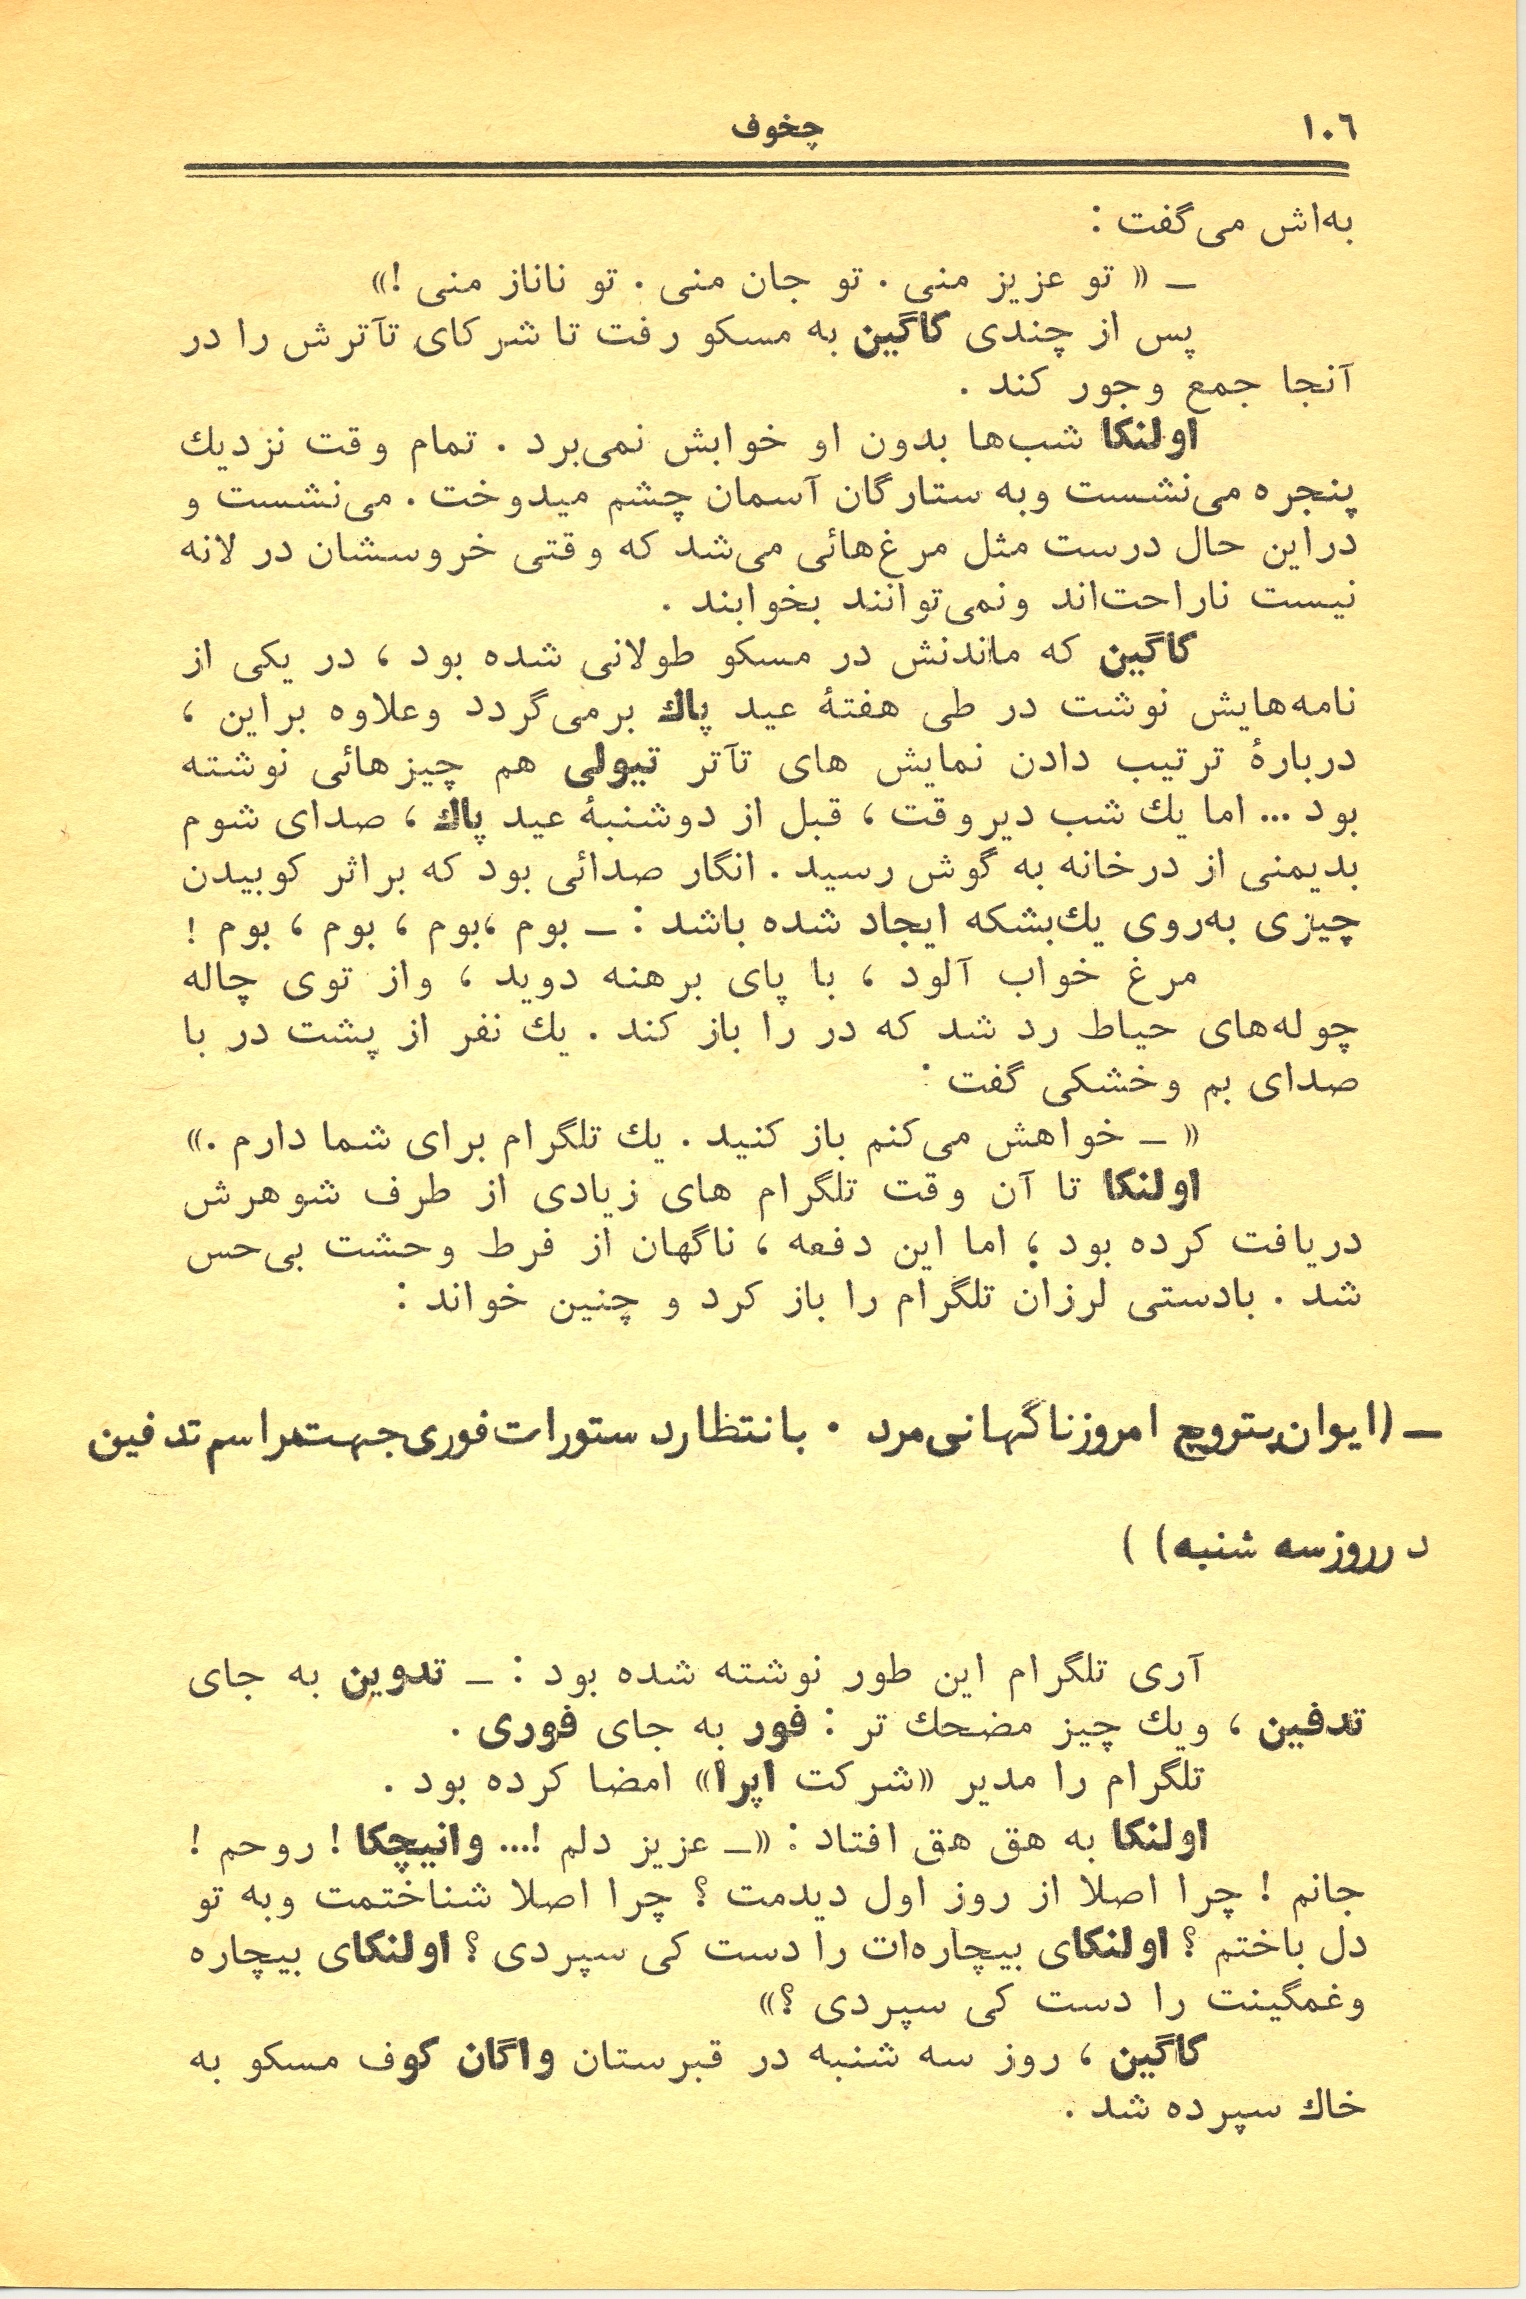 ١٠٦ چخوف
به‌اش می‌گفت :
ــ « تو عزیز منی . تو جان منی . تو ناناز منی !»
پس از چندی کاگین به مسکو رفت تا شرکای تآترش را در
آنجا جمع وجور کند .
اولنکا شب‌ها بدون او خوابش نمی‌برد . تمام وقت نزدیك
پنجره می‌نشست وبه ستارگان آسمان چشم میدوخت . می‌نشست و
دراین حال درست مثل مرغ‌هائی می‌شد که وقتی خروسشان در لانه
نیست ناراحت‌اند ونمی‌توانند بخوابند .
کاگین که ماندنش در مسکو طولانی شده بود ، در یکی از
نامه‌هایش نوشت در طی هفتهٔ عید پاك برمی‌گردد وعلاوه براین ،
دربارهٔ ترتیب دادن نمایش های تآتر تیولی هم چیزهائی نوشته
بود ... اما یك شب دیروقت ، قبل از دوشنبهٔ عید پاك ، صدای شوم
بدیمنی از درخانه به گوش رسید . انگار صدائی بود که براثر کوبیدن
چیزی به‌روی یك‌بشکه ایجاد شده باشد : ــ بوم ،بوم ، بوم ، بوم !
مرغ خواب آلود ، با پای برهنه دوید ، واز توی چاله
چوله‌های حیاط رد شد که در را باز کند . یك نفر از پشت در با
صدای بم وخشکی گفت :
« ــ خواهش می‌کنم باز کنید . یك تلگرام برای شما دارم .»
اولنکا تا آن وقت تلگرام های زیادی از طرف شوهرش
دریافت کرده بود ؛ اما این دفعه ، ناگهان از فرط وحشت بی‌حس
شد . بادستی لرزان تلگرام را باز کرد و چنین خواند :
ــ (ایوان‌پترویچ امروزناگهانی‌مرد . بانتظاردستورات‌فوری‌جهت‌مراسم‌تدفین
درروزسه شنبه) )
آری تلگرام این طور نوشته شده بود : ــ تدوین به جای
تدفین ، ویك چیز مضحك تر : فور به جای فوری .
تلگرام را مدیر «شرکت اپرا» امضا کرده بود .
اولنکا به هق هق افتاد : «ــ عزیز دلم !... وانیچکا ! روحم !
جانم ! چرا اصلا از روز اول دیدمت ؟ چرا اصلا شناختمت وبه تو
دل باختم ؟ اولنکای بیچاره‌ات را دست کی سپردی ؟ اولنکای بیچاره
وغمگینت را دست کی سپردی ؟»
کاگین ، روز سه شنبه در قبرستان واگان کوف مسکو به
خاك سپرده شد .